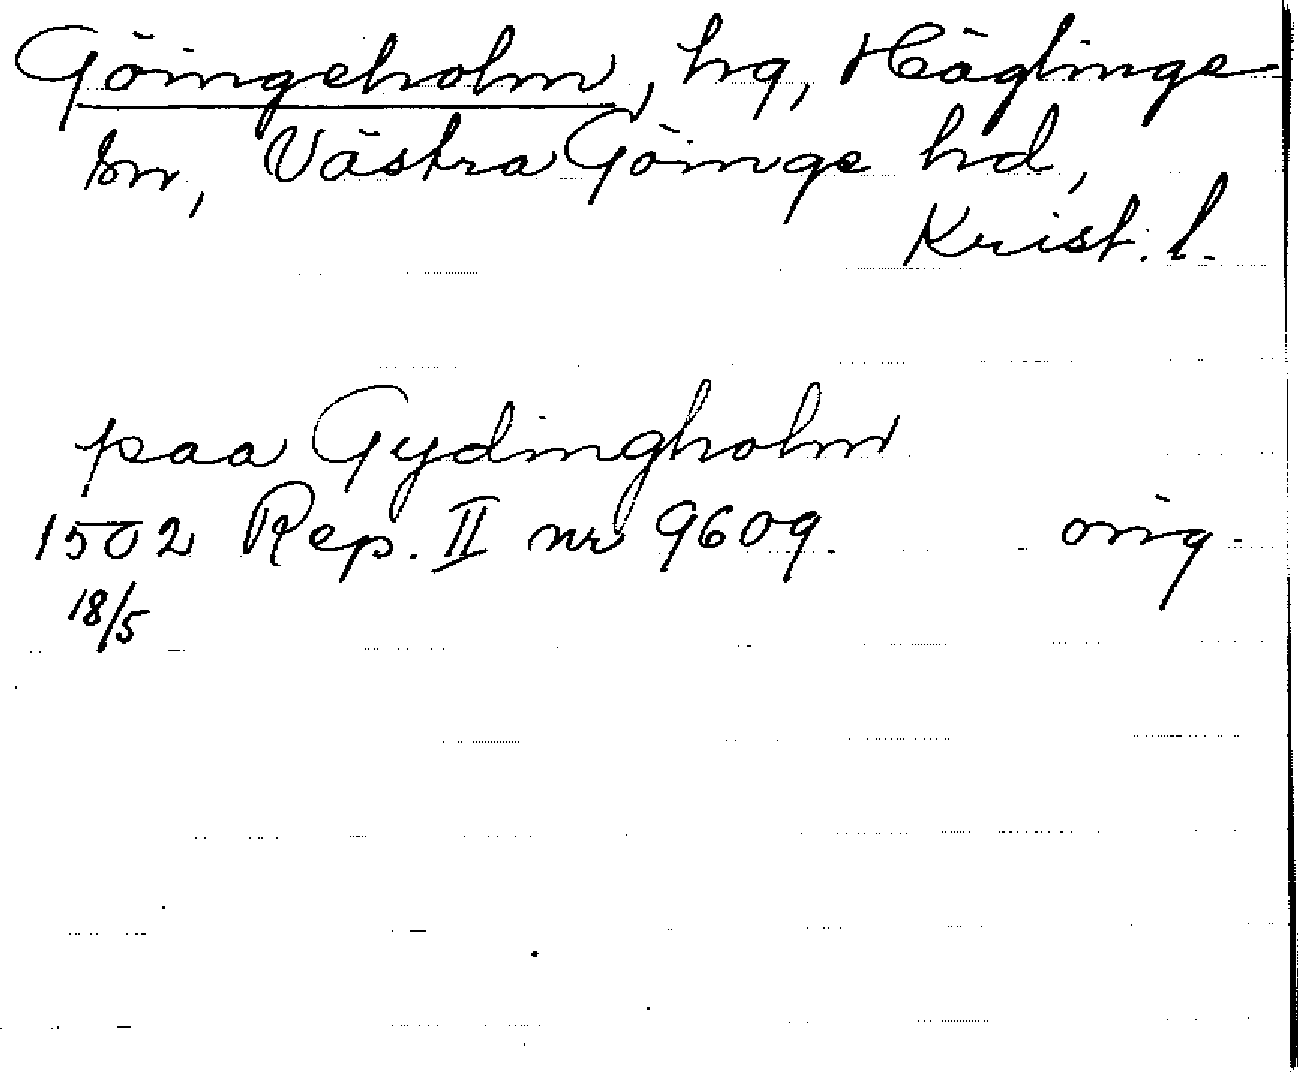 Göingeholm, hg, Häglinge
sn, Västra Göinge hd,
Krist. l.
paa Gydingholm
1502 Rep. II nr 9609. orig.
18/5